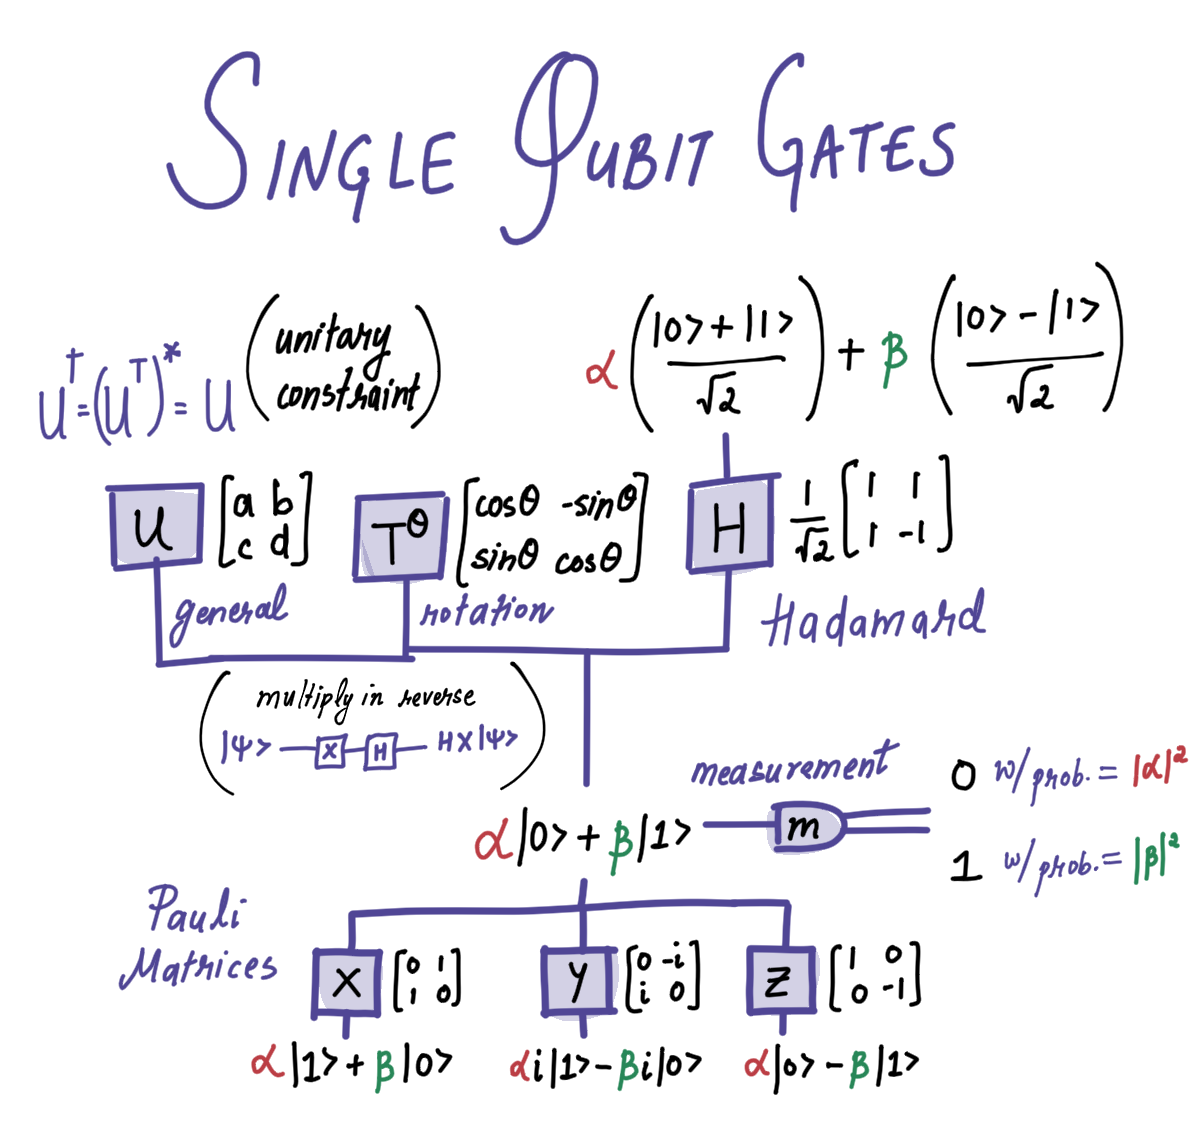 SINGLE QUBIT GATES
U† = (Uᵀ)* = U (unitary constraint)
α (|0> + |1> / √2) + β (|0> - |1> / √2)
U [a b
c d]
general
T^θ [cosθ -sinθ
sinθ cosθ]
rotation
H 1/√2 [1 1
1 -1]
Hadamard
(multiply in reverse
|Ψ> X H HX|Ψ>)
α|0> + β|1>
measurement
m
0 w/prob. = |α|²
1 w/prob. = |β|²
Pauli
Matrices
X [0 1
1 0]
Y [0 -i
i 0]
Z [1 0
0 -1]
α|1> + β|0>
αi|1> - βi|0>
α|0> - β|1>